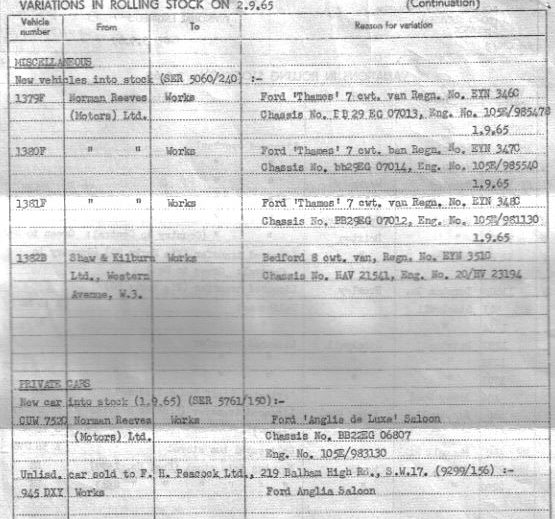 VARIATIONS IN ROLLING STOCK ON 2.9.65 (Continuation)
Vehicle number From To Reason for variation
MISCELLANEOUS
New vehicles into stock (SER 5060/240) :-
1379F Norman Reeves Works Ford 'Thames' 7 cwt. van Regn. No. EYN 346C
(Motors) Ltd. Chassis No. BB 29 EG 07013, Eng. No. 105E/985478
1.9.65
1380F " " Works Ford 'Thames' 7 cwt. ban Regn. No. EYN 347C
Chassis No. bb29EG 07014, Eng. No. 105E/985540
1.9.65
1381F " " Works Ford 'Thames' 7 cwt. van Regn. No. EYN 348C
Chassis No. BB29EG 07012, Eng. No. 105E/981130
1.9.65
1382B Shaw & Kilburn Works Bedford 8 cwt. van, Regn. No. EYN 351C
Ltd., Western Chassis No. HAV 21541, Eng. No. 20/HV 23194
Avenue, W.3.
PRIVATE CARS
New car into stock (1.9.65) (SER 5761/150) :-
CUW 752C Norman Reeves Works Ford 'Anglia de Luxe' Saloon
(Motors) Ltd. Chassis No. BB22EG 06807
Eng. No. 105E/983130
Unlisd. car sold to F. H. Peacock Ltd., 219 Balham High Rd., S.W.17. (9299/156) :-
945 DXY Works Ford Anglia Saloon